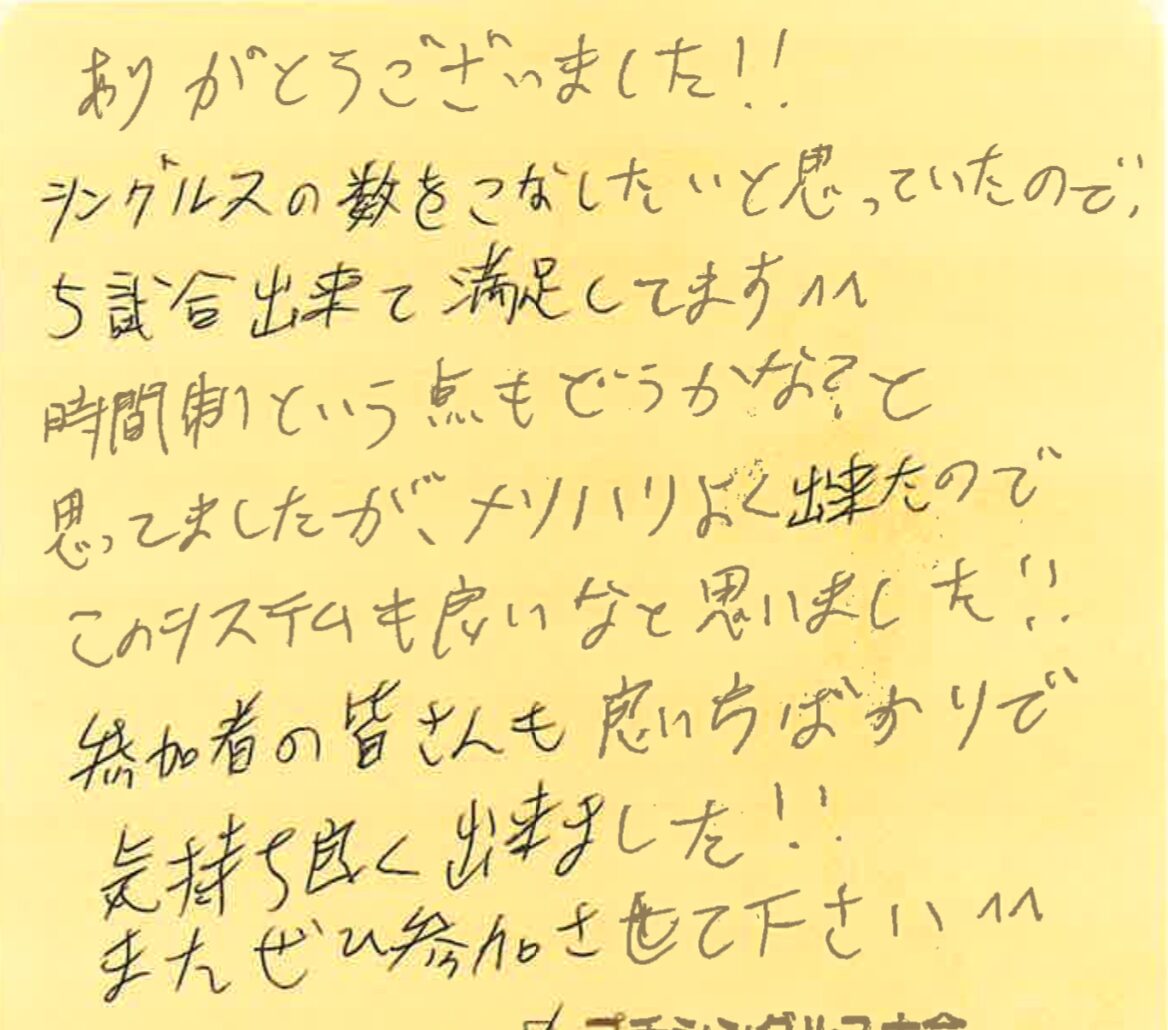 ありがとうございました!!
シングルスの数をこなしたいと思っていたので、
5試合出来て満足してます^^
時間制という点もどうかな?と
思ってましたが、メリハリよく出来たので
このシステムも良いなと思いました!!
参加者の皆さんも良い方ばかりで
気持ち良く出来ました!!
またぜひ参加させて下さい^^
プチシングルス大会